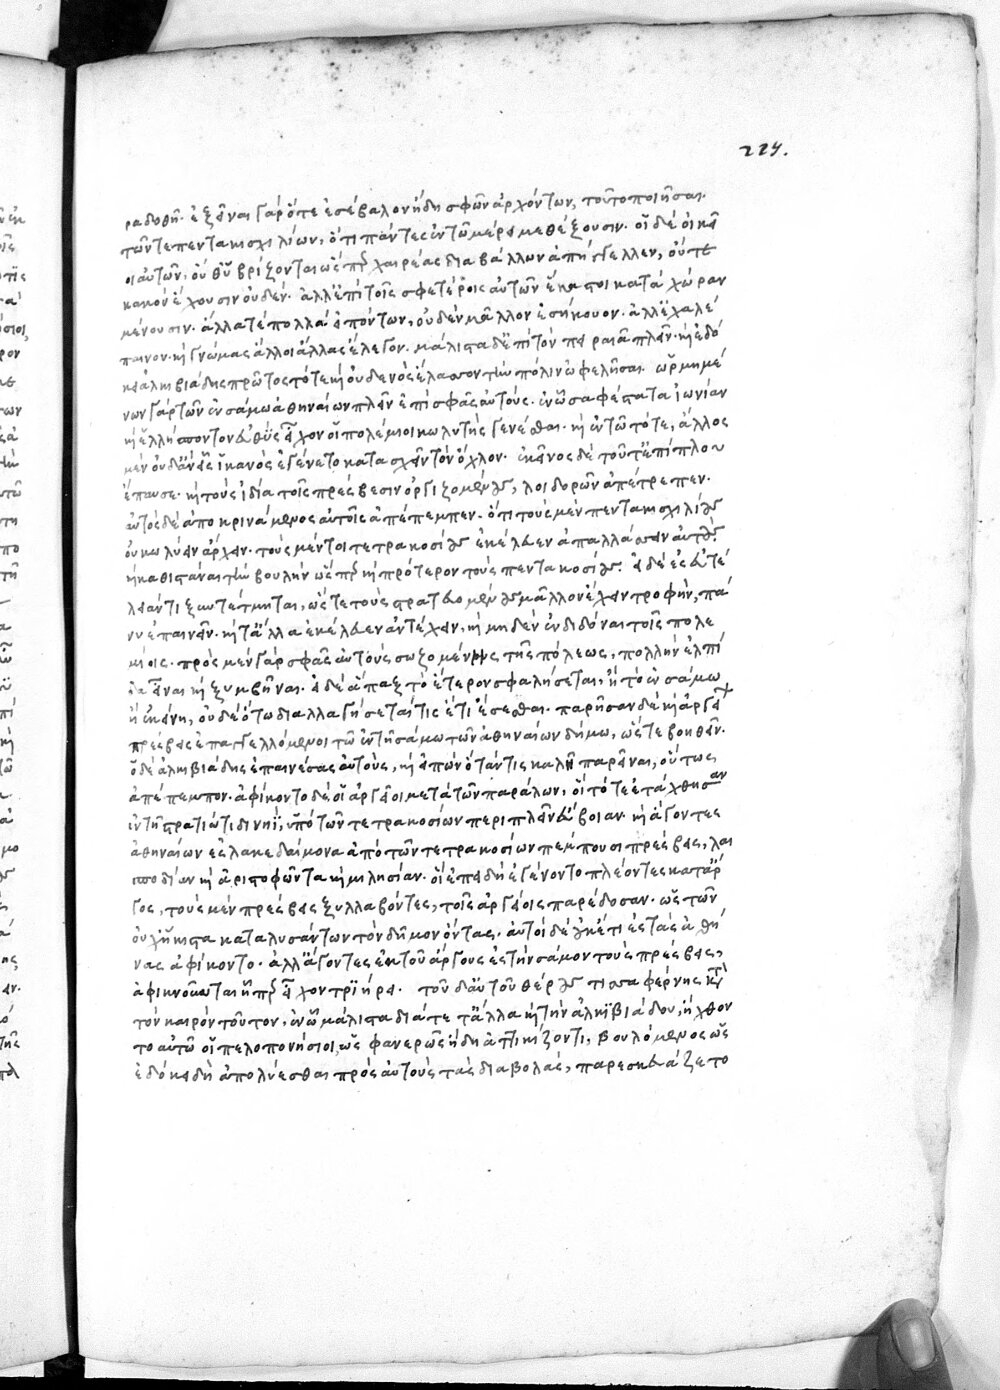 224.
ραδοθῇ. ἐξεῖναι γὰρ ὅτε ἐσέβαλον ἤδη σφῶν ἀρχόντων, τοῦτο ποιῆσαι.
τῶν τε πεντακισχιλίων, ὅτι πάντες ἐν τῷ μέρει μεθέξουσιν. οἵ δὲ οἰκεῖ
οι αὐτῶν, οὔθ' ὑβρίζονται ὥσπερ χαιρέας διαβάλλων ἀπήγγελλεν, οὔτε
κακὸν ἔχουσιν οὐδέν. ἀλλ' ἐπὶ τοῖς σφετέροις αὐτῶν ἕκαστοι κατὰ χώραν
μένουσιν. ἄλλα τε πολλὰ εἰπόντων, οὐδὲν μᾶλλον ἐσήκουον. ἀλλ' ἐχαλέ
παινον. καὶ γνώμας ἄλλοι ἄλλας ἔλεγον. μάλιστα δ' ἐπὶ τὸν πειραιᾶ πλεῖν. καὶ ἐδό
κει ἀλκιβιάδης πρῶτος τότε καὶ οὐδενὸς ἔλασσον τὴν πόλιν ὠφελῆσαι. ὡρμημέ
νων γὰρ τῶν ἐν σάμω ἀθηναίων πλεῖν ἐπὶ σφᾶς αὐτούς. ἐν ᾧ σαφέστατα ἰωνίαν
καὶ ἑλλήσποντον εὐθὺς εἶχον οἱ πολέμιοι κωλυτὴς γενέσθαι. καὶ ἐν τῷ τότε, ἄλλος
μὲν οὐδ' ἂν εἷς ἱκανὸς ἐγένετο κατασχεῖν τὸν ὄχλον. ἐκεῖνος δὲ τοῦ τ' ἐπίπλου
ἔπαυσε. καὶ τοὺς ἰδία τοῖς πρέσβεσιν ὀργιζομένους, λοιδορῶν ἀπέτρεπεν.
αὐτὸς δὲ ἀποκρινάμενος αὐτοῖς ἀπέπεμπεν. ὅτι τοὺς μὲν πεντακισχιλίους
οὐ κωλύειν ἄρχειν. τοὺς μέντοι τετρακοσίους ἐκέλευεν ἀπαλλάσσειν αὐτούς.
καὶ καθιστάναι τὴν βουλὴν ὥσπερ καὶ πρότερον τοὺς πεντακοσίους. εἰ δὲ ἐς εὐτέ
λειάν τι ξυντέτμηται, ὥστε τοὺς στρατευομένους μᾶλλον ἔχειν τροφὴν, πά
νυ ἐπαινεῖν. καὶ τἄλλα ἐκέλευεν ἀντέχειν, καὶ μηδὲν ἐνδιδόναι τοῖς πολε
μίοις. πρὸς μὲν γὰρ σφᾶς αὐτοὺς σωζομένης τῆς πόλεως, πολλὴν ἐλπί
δα εἶναι καὶ ξυμβῆναι. εἰ δὲ ἅπαξ τὸ ἕτερον σφαλήσεται, ἢ τὸ ἐν σάμω
ἢ ἐκείνη, οὐδὲ ὅτω διαλλαγήσεταί τις ἔτι ἔσεσθαι. παρῆσαν δὲ καὶ ἀργεί
πρέσβεις ἐπαγγελλόμενοι τῶ ἐν τῆ σάμω τῶν ἀθηναίων δήμω, ὥστε βοηθεῖν.
ὁ δὲ ἀλκιβιάδης ἐπαινέσας αὐτοὺς, καὶ εἰπὼν ὅταν τις καλῆ παρεῖναι, οὕτως
ἀπέπεμπον. ἀφίκοντο δὲ οἱ ἀργεῖοι μετὰ τῶν παράλων, οἳ τότε ἐτάχθησαν
ἐν τῆ στρατιώτιδι νηῒ, ὑπὸ τῶν τετρακοσίων περιπλεῖν εὔβοιαν. καὶ ἄγοντες
ἀθηναίων ἐς λακεδαίμονα ἀπὸ τῶν τετρακοσίων πεμπουσι πρέσβεις, λαι
σποδίαν καὶ ἀριστοφῶντα καὶ μιλησίαν. οἳ ἐπειδὴ ἐγένοντο πλέοντες κατ' ἄρ
γος, τοὺς μὲν πρέσβεις ξυλλαβόντες, τοῖς ἀργείοις παρέδοσαν. ὡς τῶν
οὐχ ἥκιστα καταλυσάντων τὸν δῆμον ὄντας. αὐτοὶ δὲ οὐκέτι ἐς τὰς ἀθή
νας ἀφίκοντο. ἀλλ' ἄγοντες ἐκ τοῦ ἄργους ἐς τὴν σάμον τοὺς πρέσβεις,
ἀφικνοῦνται ᾗπερ εἶχον τριήρει. τοῦ δ' αὐτοῦ θέρους τισσαφέρνης κατὰ
τὸν καιρὸν τοῦτον, ἐν ᾧ μάλιστα διά τε τἄλλα καὶ τὴν ἀλκιβιάδου, ἤχθον
το αὐτῶ οἱ πελοπονήσιοι, ὡς φανερῶς ἤδη ἀττικίζοντι, βουλόμενος ὡς
ἐδόκει δὴ ἀπολύεσθαι πρὸς αὐτοὺς τὰς διαβολάς, παρεσκευάζετο